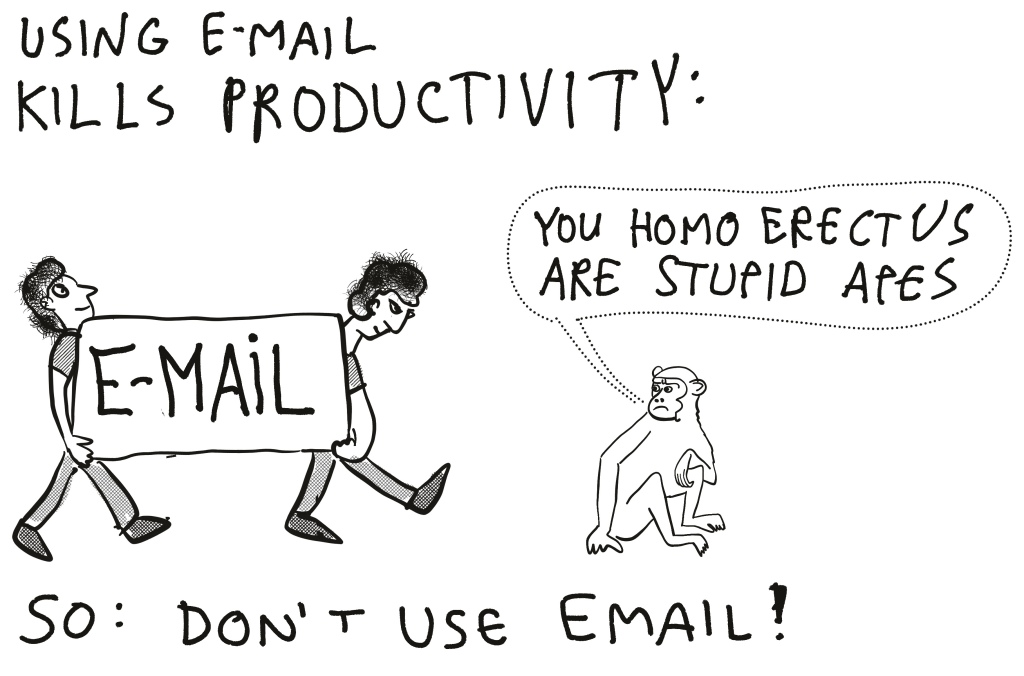 USING E-MAIL
KILLS PRODUCTIVITY:
YOU HOMO ERECTUS
ARE STUPID APES
E-MAiL
SO: DON'T USE EMAIL!